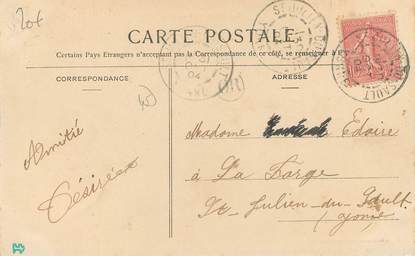 20f
CARTE POSTALE
Certains Pays Etrangers n'acceptant pas la Correspondance de ce côté, se renseigner à
CORRESPONDANCE
ADRESSE
Amitié
Désirée
Madame Edoire
à La Forge
St-Julien-du-Sault
Yonne